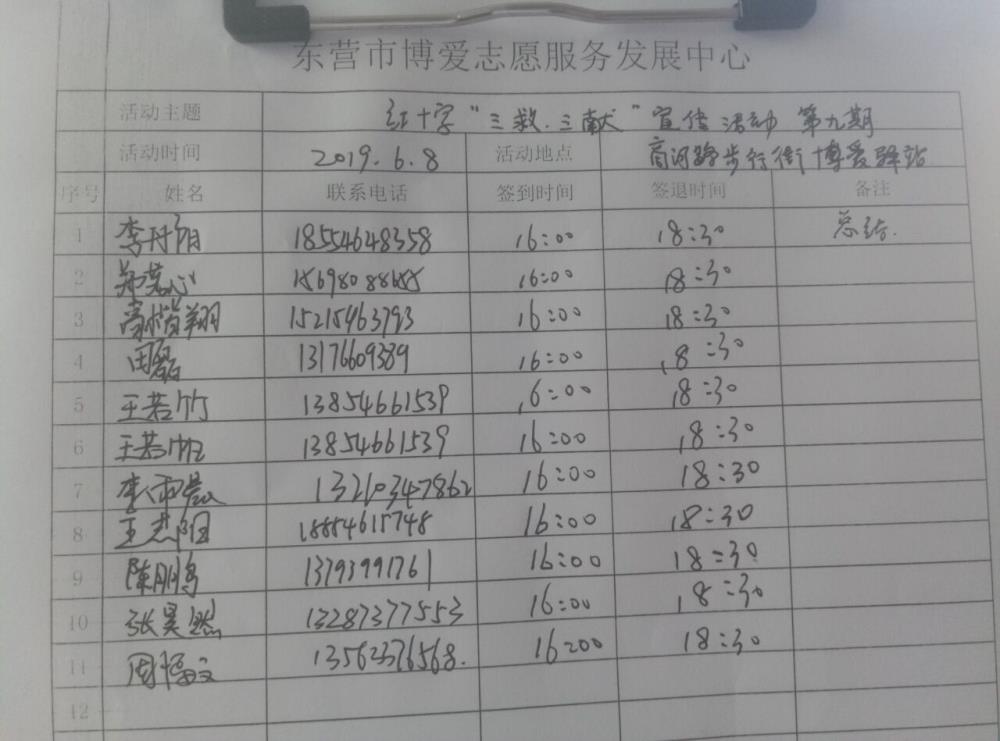 东营市博爱志愿服务发展中心
活动主题 红十字“三救.三献”宣传活动 第九期
活动时间 2019.6.8 活动地点 商河路步行街博爱驿站
序号 姓名 联系电话 签到时间 签退时间 备注
1 李丹阳 18554648358 16:00 18:30 总结.
2 16:00 18:30
3 高楷翔 15215463793 16:00 18:30
4 田磊 13176609389 16:00 18:30
5 王若竹 13854661539 16:00 18:30
6 王若帆 13854661539 16:00 18:30
7 李雨宸 13210347862 16:00 18:30
8 王志阳 18854615748 16:00 18:30
9 陈鹏 13793991761 16:00 18:30
10 张昊然 13287377553 16:00 18:30
11 13562376568. 16:00 18:30
12